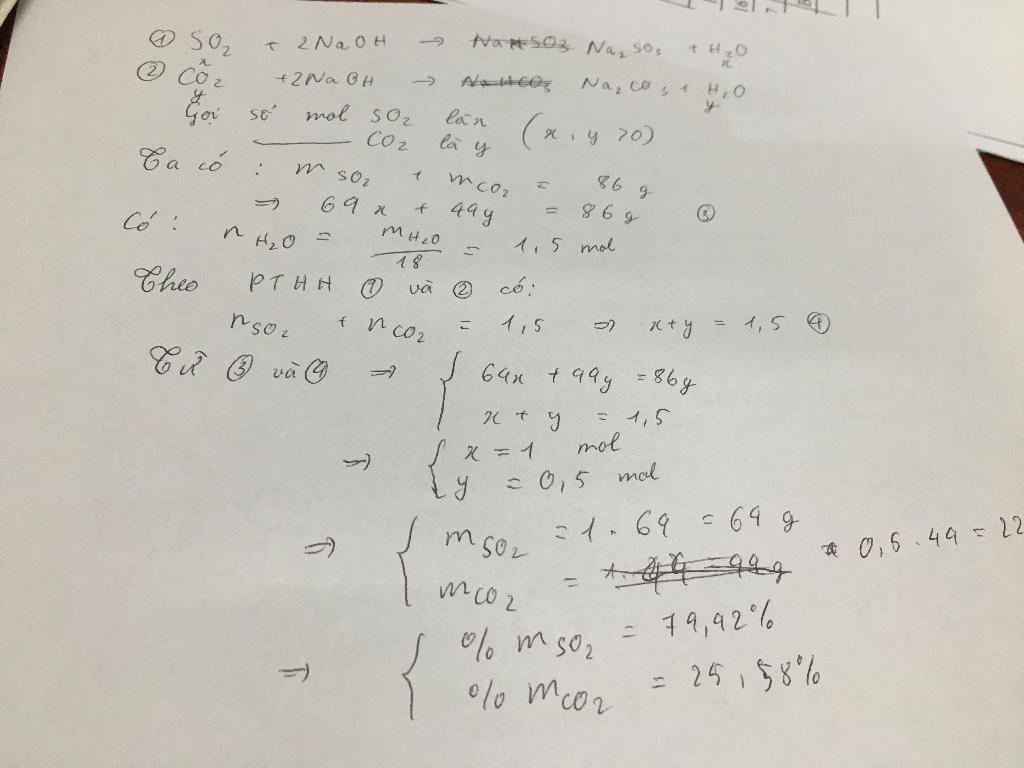 ① SO2 + 2NaOH → NaHSO3 Na2SO3 + H2O
x x
② CO2 + 2NaOH → NaHCO3 Na2CO3 + H2O
y y
Gọi số mol SO2 là x (x, y >0)
CO2 là y
Ta có : m SO2 + m CO2 = 86 g
⇒ 64x + 44y = 86g ③
Có : n H2O = mH2O/18 = 1,5 mol
Theo PTHH ① và ② có:
n SO2 + n CO2 = 1,5 ⇒ x+y = 1,5 ④
Từ ③ và ④ ⇒ { 64x + 44y = 86g
x + y = 1,5
⇒ { x = 1 mol
y = 0,5 mol
⇒ { m SO2 = 1 . 64 = 64 g
m CO2 = 0,5 . 44 = 22
⇒ { % m SO2 = 74,42%
% m CO2 = 25,58%